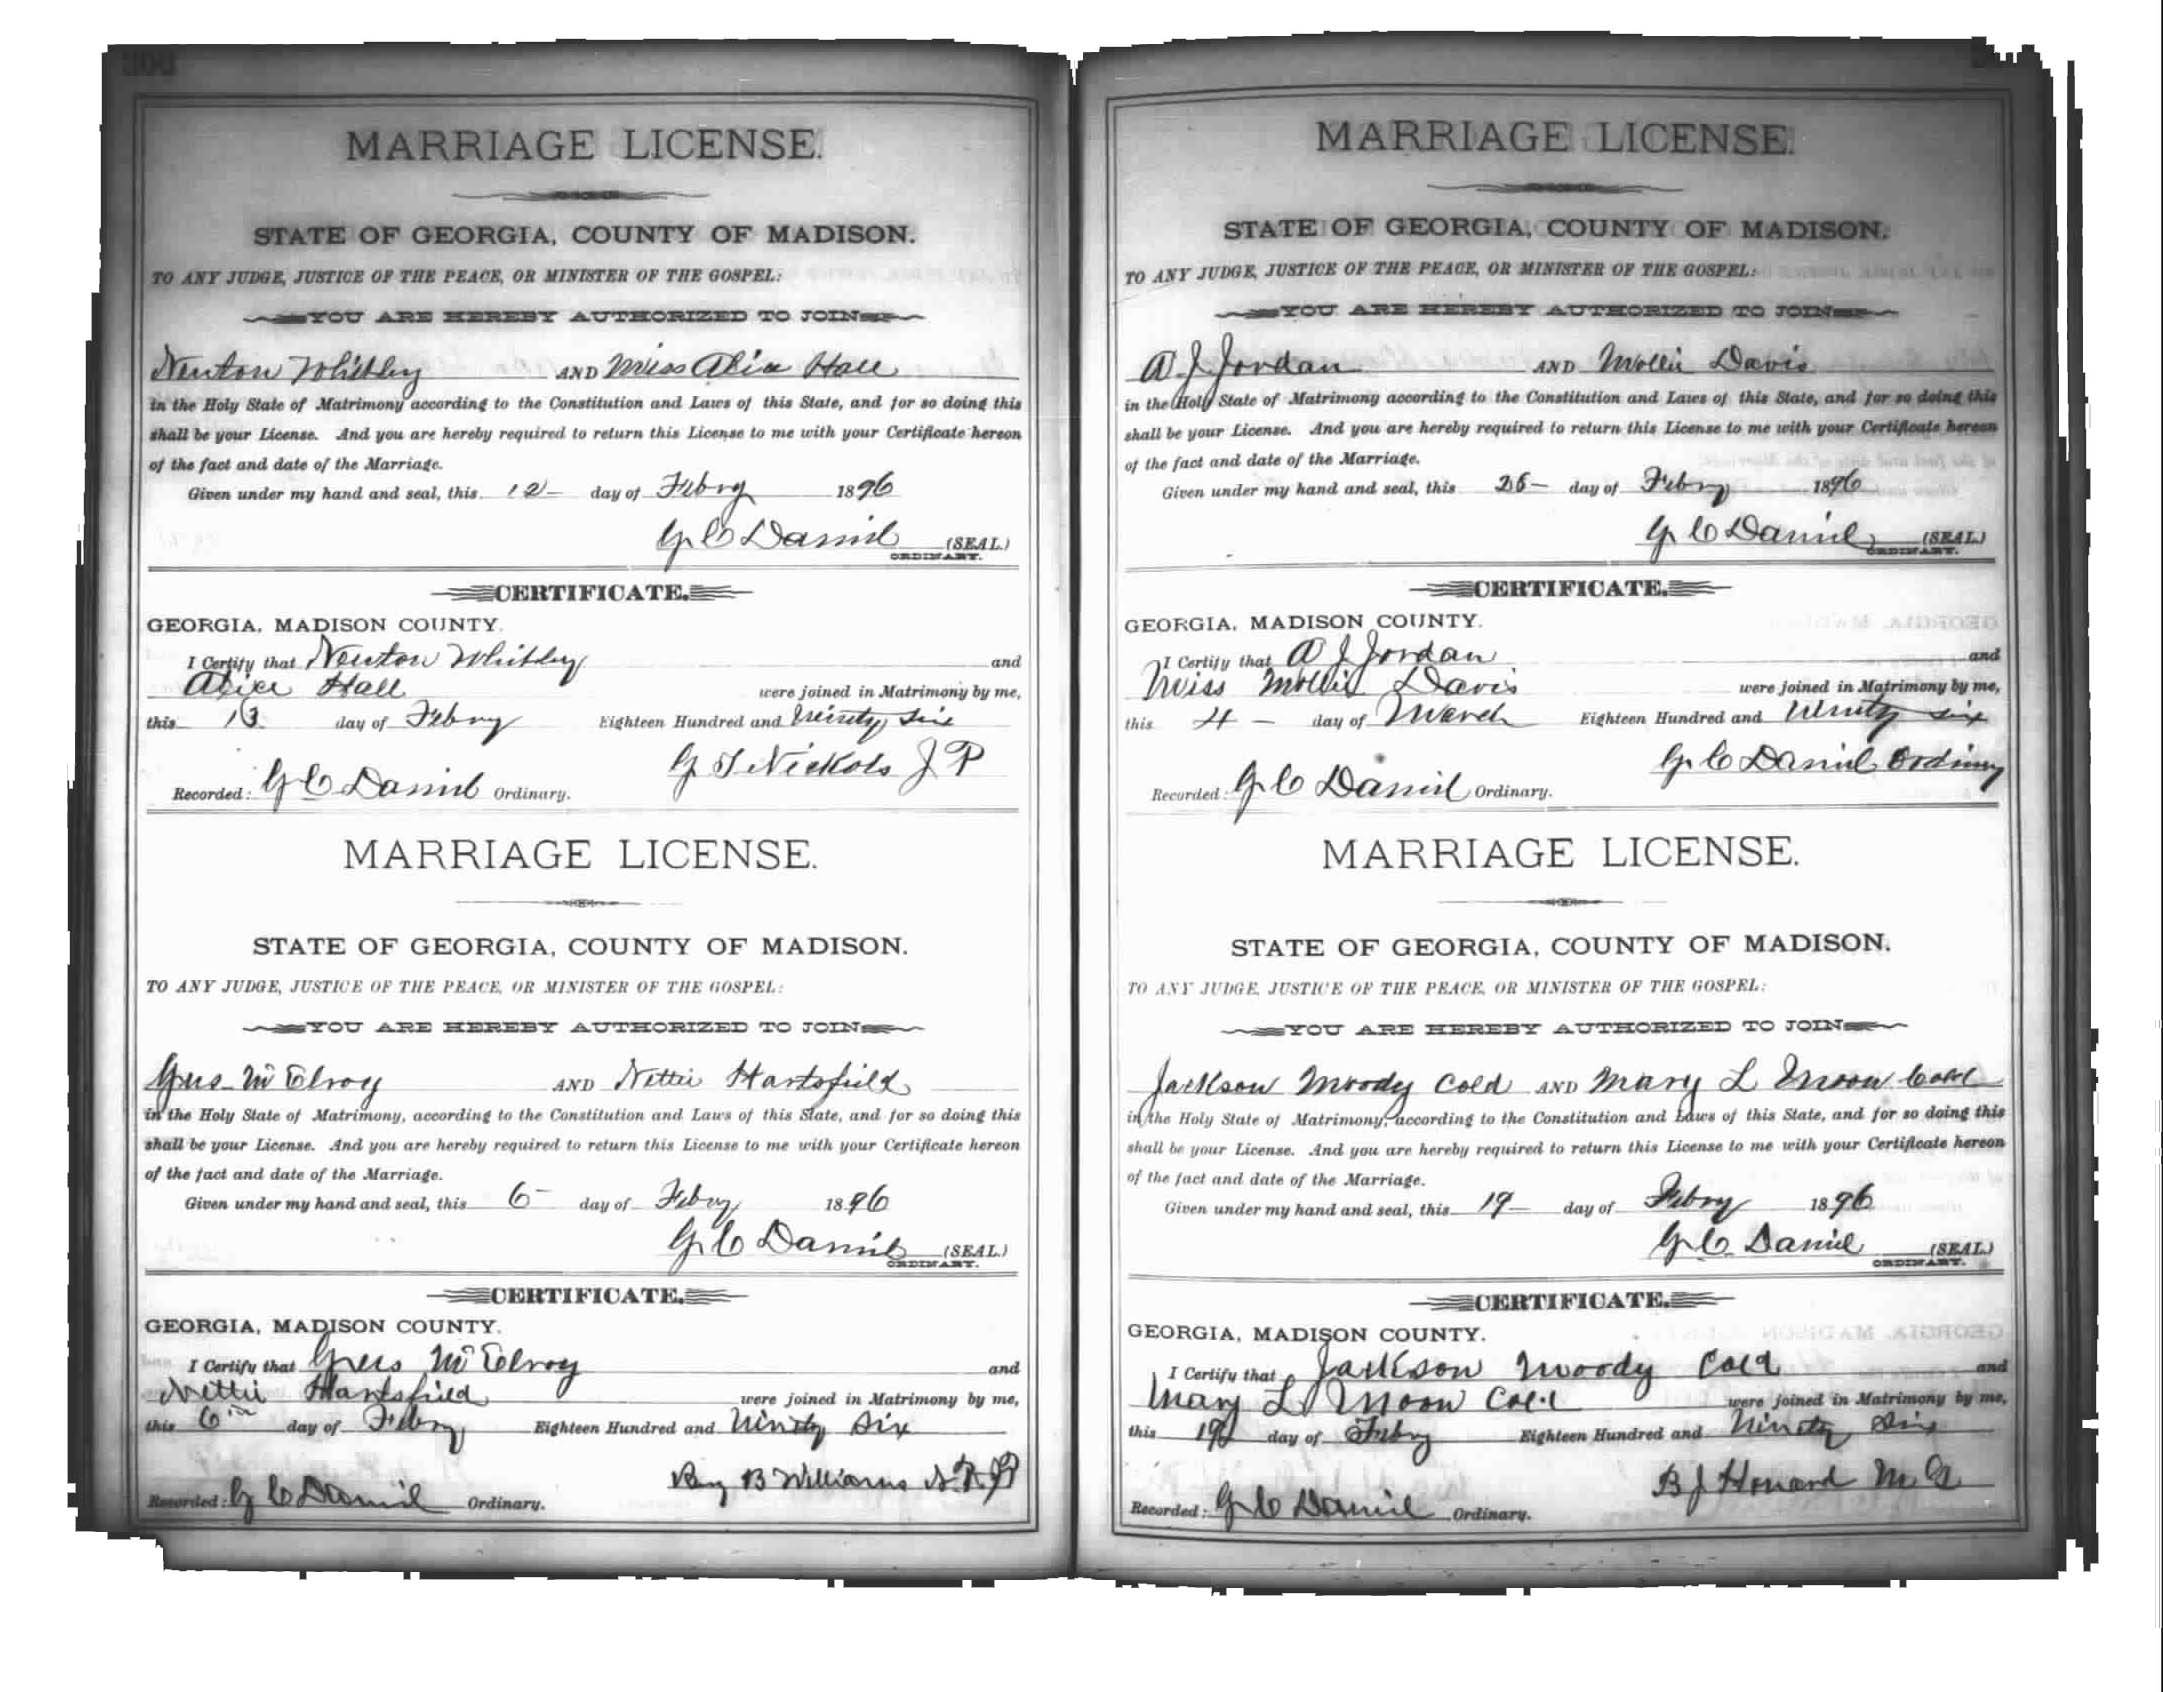 MARRIAGE LICENSE.
STATE OF GEORGIA, COUNTY OF MADISON.
TO ANY JUDGE, JUSTICE OF THE PEACE, OR MINISTER OF THE GOSPEL:
YOU ARE HEREBY AUTHORIZED TO JOIN
Newton Whitley AND Miss Alice Hall
in the Holy State of Matrimony according to the Constitution and Laws of this State, and for so doing this
shall be your License. And you are hereby required to return this License to me with your Certificate hereon
of the fact and date of the Marriage.
Given under my hand and seal, this 12 day of Febry 1896
G C Daniel (SEAL.)
ORDINARY.
CERTIFICATE.
GEORGIA, MADISON COUNTY.
I Certify that Newton Whitley and
Alice Hall were joined in Matrimony by me,
this 13 day of Febry Eighteen Hundred and Ninety Six
G T Nickols J P
Recorded: G C Daniel Ordinary.
MARRIAGE LICENSE.
STATE OF GEORGIA, COUNTY OF MADISON.
TO ANY JUDGE, JUSTICE OF THE PEACE, OR MINISTER OF THE GOSPEL:
YOU ARE HEREBY AUTHORIZED TO JOIN
Gus McElroy AND Nettie Hartsfield
in the Holy State of Matrimony, according to the Constitution and Laws of this State, and for so doing this
shall be your License. And you are hereby required to return this License to me with your Certificate hereon
of the fact and date of the Marriage.
Given under my hand and seal, this 6 day of Febry 1896
G C Daniel (SEAL.)
ORDINARY.
CERTIFICATE.
GEORGIA, MADISON COUNTY.
I Certify that Gus McElroy and
Nettie Hartsfield were joined in Matrimony by me,
this 6th day of Febry Eighteen Hundred and Ninety Six
B Williams
Recorded: G C Daniel Ordinary.
MARRIAGE LICENSE.
STATE OF GEORGIA, COUNTY OF MADISON.
TO ANY JUDGE, JUSTICE OF THE PEACE, OR MINISTER OF THE GOSPEL:
YOU ARE HEREBY AUTHORIZED TO JOIN
A J Jordan AND Mollie Davis
in the Holy State of Matrimony according to the Constitution and Laws of this State, and for so doing this
shall be your License. And you are hereby required to return this License to me with your Certificate hereon
of the fact and date of the Marriage.
Given under my hand and seal, this day of Febry 1896
G C Daniel (SEAL.)
ORDINARY.
CERTIFICATE.
GEORGIA, MADISON COUNTY.
I Certify that A J Jordan and
Miss Mollie Davis were joined in Matrimony by me,
this 4 day of March Eighteen Hundred and Ninety six
G C Daniel Ordinary
Recorded: G C Daniel Ordinary.
MARRIAGE LICENSE.
STATE OF GEORGIA, COUNTY OF MADISON.
TO ANY JUDGE, JUSTICE OF THE PEACE, OR MINISTER OF THE GOSPEL:
YOU ARE HEREBY AUTHORIZED TO JOIN
Jackson Moody Cold AND Mary L Moon Cold
in the Holy State of Matrimony, according to the Constitution and Laws of this State, and for so doing this
shall be your License. And you are hereby required to return this License to me with your Certificate hereon
of the fact and date of the Marriage.
Given under my hand and seal, this 19 day of Febry 1896
G C Daniel (SEAL.)
ORDINARY.
CERTIFICATE.
GEORGIA, MADISON COUNTY.
I Certify that Jackson Moody Cold and
Mary L Moon Cold were joined in Matrimony by me,
this 19 day of Febry Eighteen Hundred and Ninety Six
B J Howard M G
Recorded: G C Daniel Ordinary.